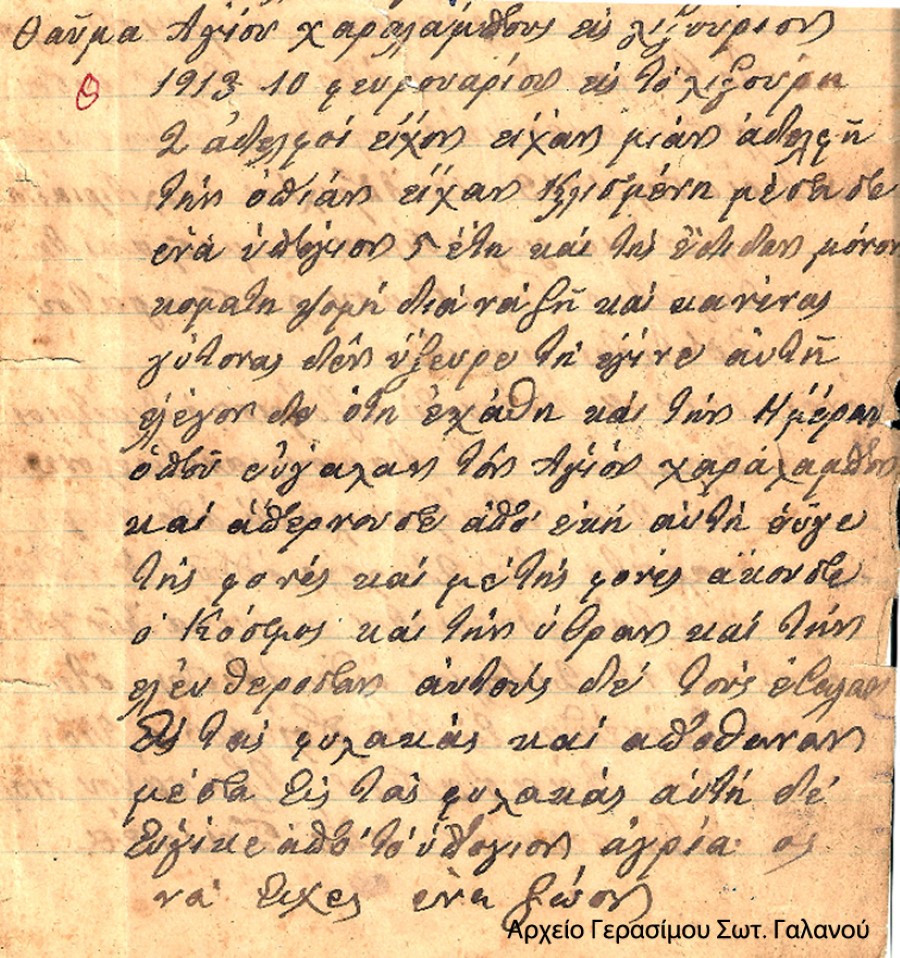 Θαῦμα Ἁγίου χαραλάμπους εἰς ληξούριον
1913 10 φευρουαρίου εἰς τό ληξούρη
2 ἀδελφοί εἶχον εἴχαν μιάν ἀδελφῆ
τήν ὁπιάν εἴχαν Κλισμένη μέσα σε
ενά ὑπόγιον 5 έτη καί της ἔδιδαν μόνον
κομάτη ψομή διά νά ζῆ καί κανένας
γύτονας δέν ὑξευρε τη εγινε αὐτῆ
ἐλέγον δε ὁτη ἐχάθη καί τήν Ημέραν
ὁποῦ εὐγαλαν τόν Ἁγίον χαράλαμπον
καί ἀπερνουσε ἀπό εκή αὐτή εὐγε
τής φονές καί μέ τής φονές ἀκουσε
ὁ Κόσμος καί τήν ὑβραν καί τήν
ελευθεροσαν ἀυτούς δέ τούς ἐβαλαν
Εἰς τας φυλακάς καί απόθαναν
μέσα Εἰς τας φυλακάς ἀυτή δέ
Εὐγικε ἀπό τό ὑπόγιον ἀγρία ος
νά Ειχες ένα ζώον
Αρχείο Γερασίμου Σωτ. Γαλανού